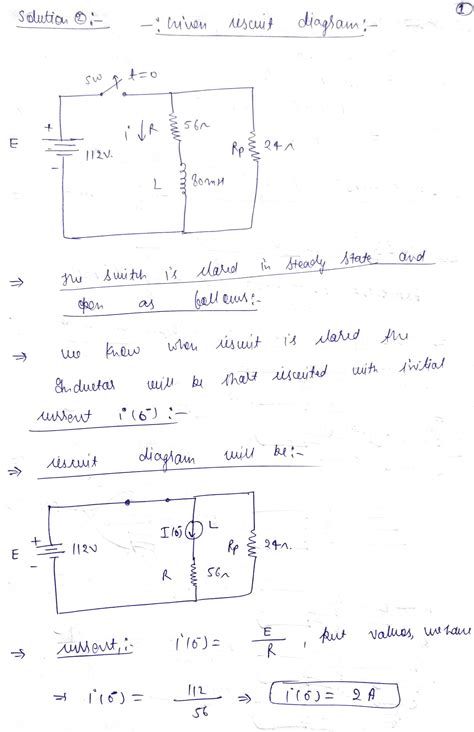 ①
Solution ②:- -: Given circuit diagram:-
SW t=0
E + - 112V. i ↓ R 56Ω Rp 24Ω
L 80mH
⇒ The switch is closed in steady state and
open as follows:-
→ we know when circuit is closed the
Inductor will be short circuited with initial
current i(0⁻):-
⇒ circuit diagram will be:-
I(0⁻) L
E + - 112V Rp 24Ω.
R 56Ω
⇒ current,:- i(0⁻) = E/R , put values, we have
⇒ i(0⁻) = 112/56 ⇒ i(0⁻) = 2A